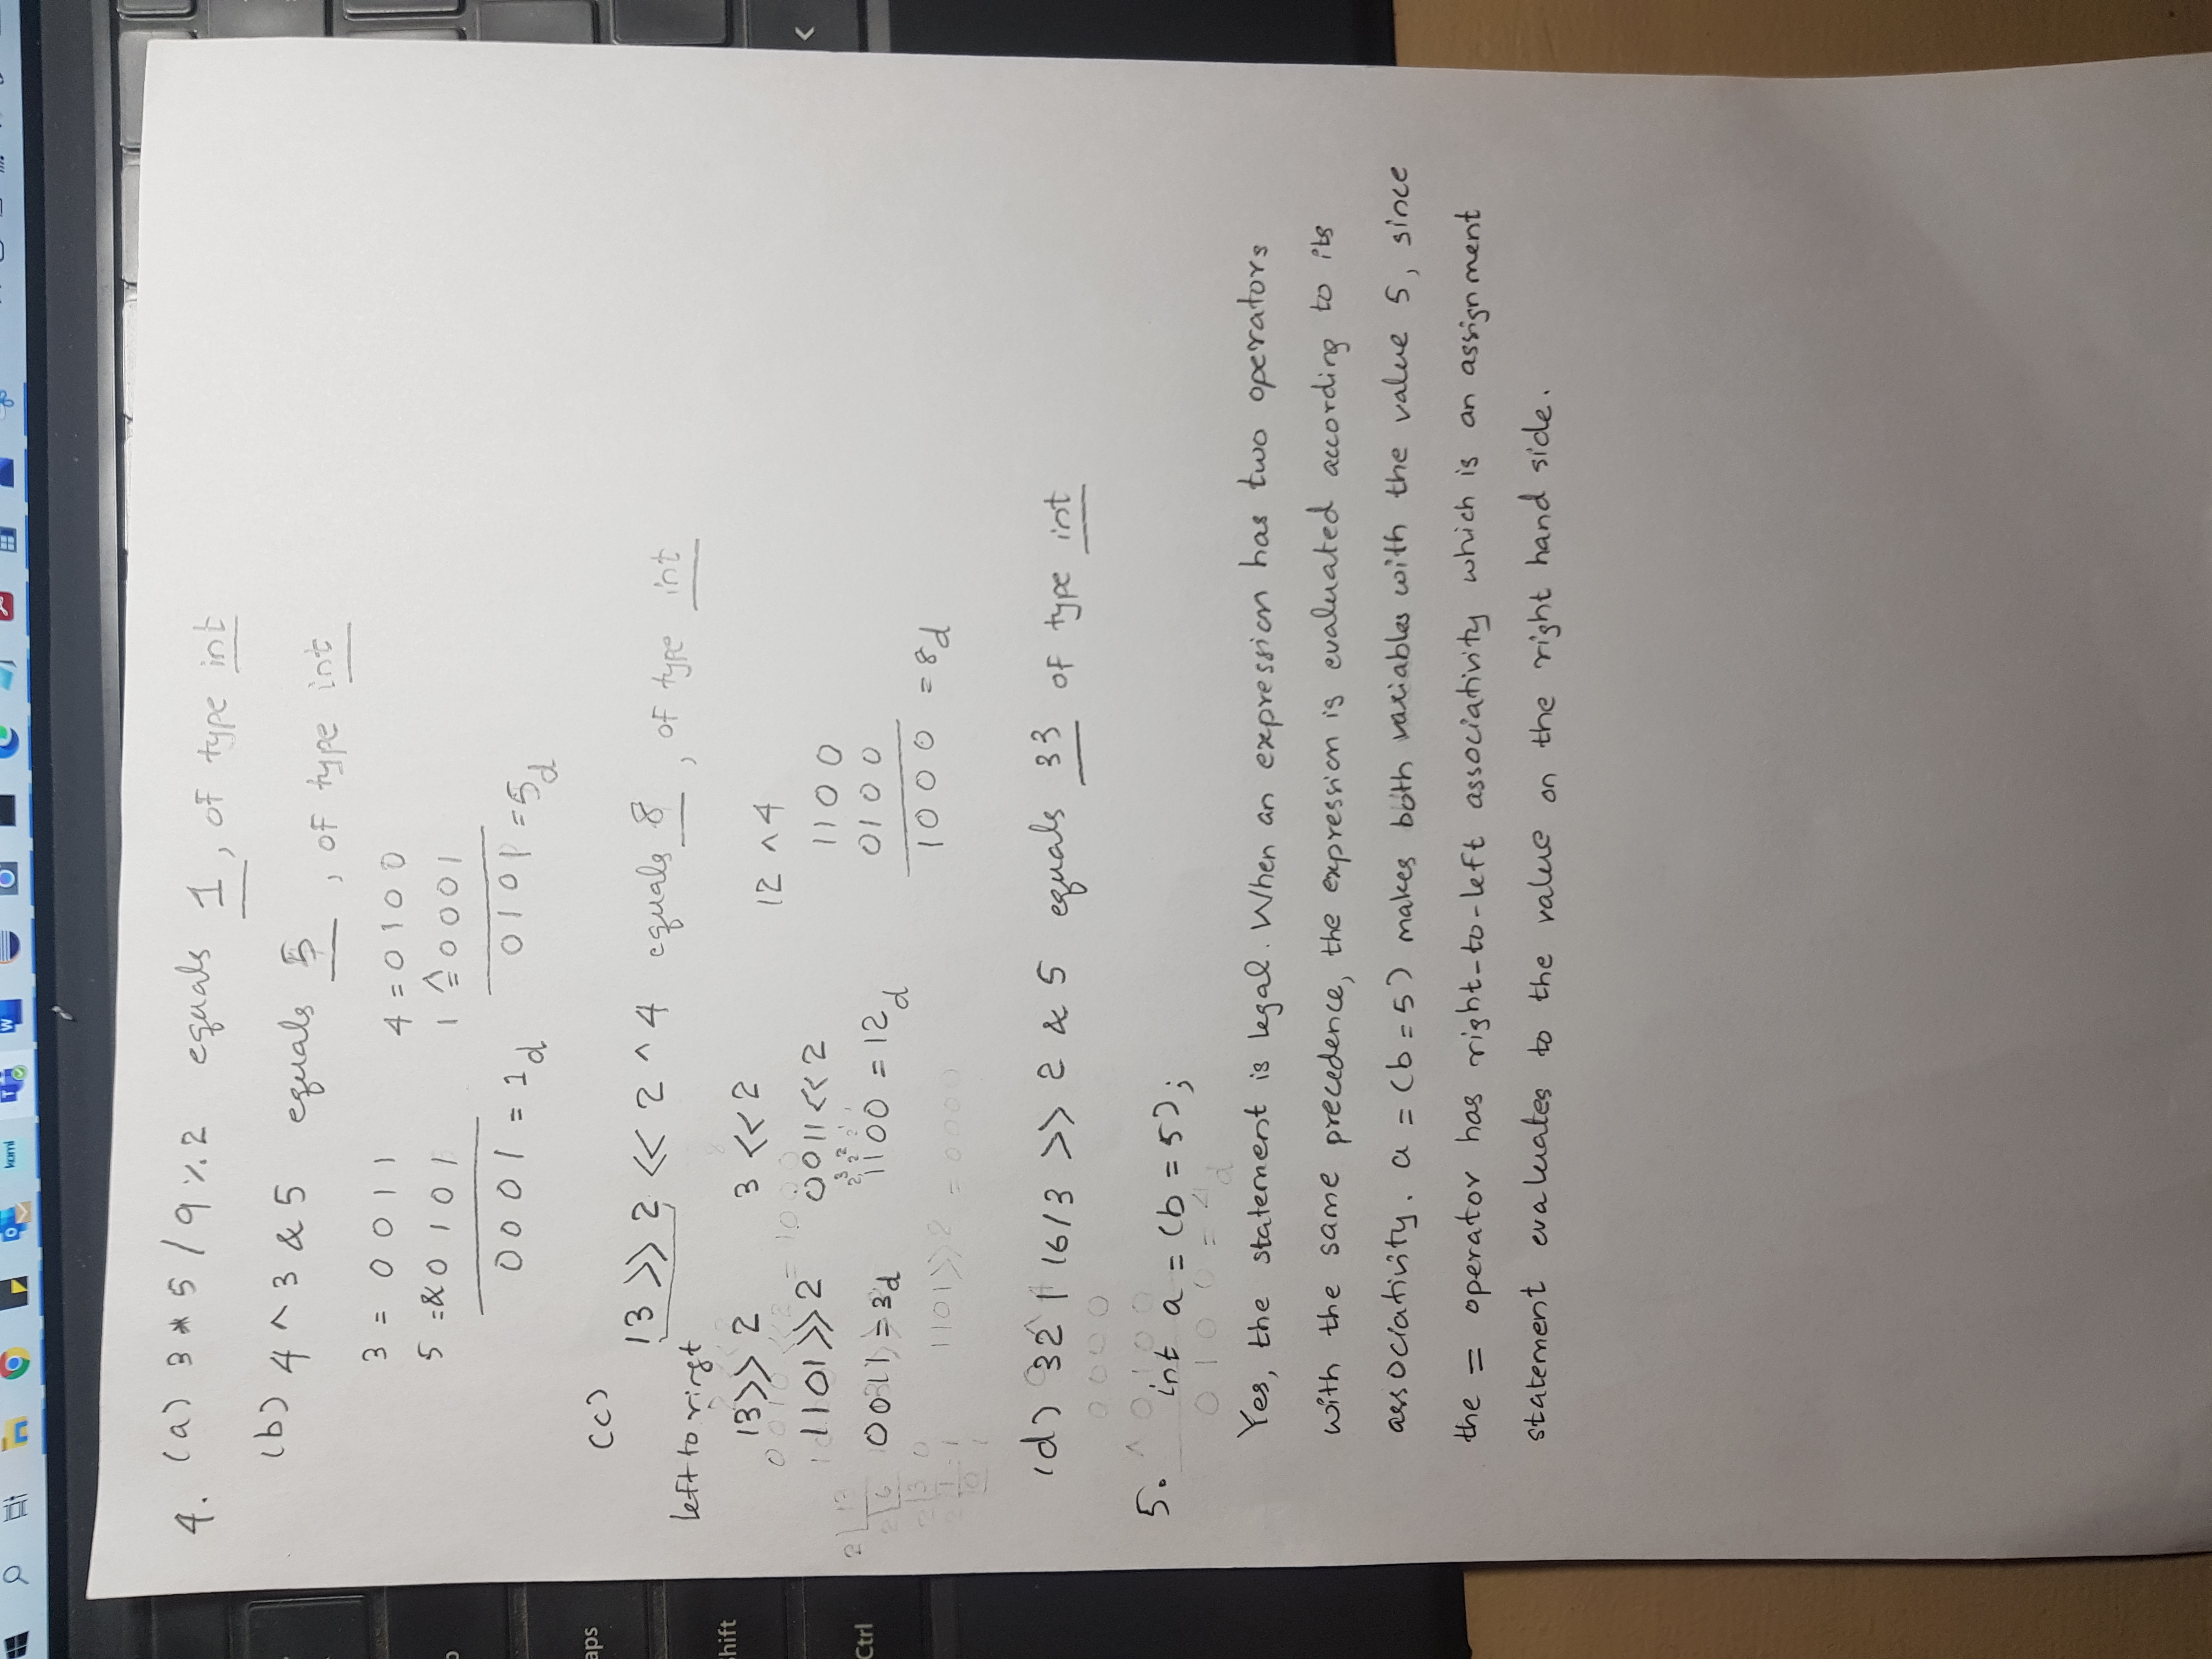 komi
4. (a) 3 * 5 / 9 % 2 equals 1, of type int
(b) 4 ^ 3 & 5 equals 5, of type int
3 = 0011 4 = 0100
5 =& 0101 1 ^= 0001
0001 = 1d 0101 = 5d
(c)
13 >> 2 << 2 ^ 4 equals 8, of type int
left to rirgt
13 >> 2 3 << 2 12 ^ 4
1101 >> 2 0011 << 2 1100
0011 = 3d 1100 = 12d 0100
1000 = 8d
1101 >> 2 = 0000
(d) 32 | 16/3 >> 2 & 5 equals 33 of type int
0000
^ 0100
5. int a = (b = 5);
0100 = 4d
Yes, the statement is legal. When an expression has two operators
with the same precedence, the expression is evaluated according to its
associativity. a = (b = 5) makes both variables with the value 5, since
the = operator has right-to-left associativity which is an assignment
statement evaluates to the value on the right hand side.
aps
hift
Ctrl